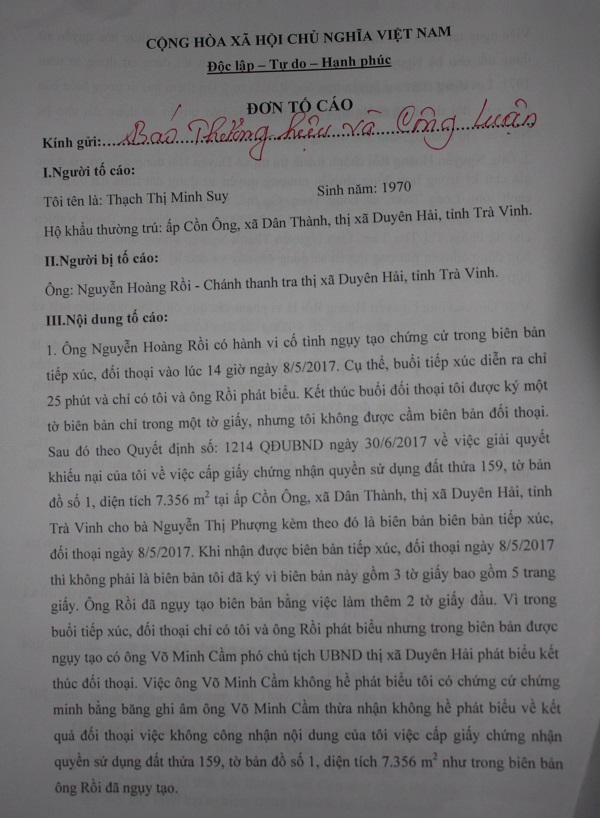 CỘNG HÒA XÃ HỘI CHỦ NGHĨA VIỆT NAM
Độc lập – Tự do – Hạnh phúc
ĐƠN TỐ CÁO
Kính gửi:...Báo Thương hiệu và Công luận
I.Người tố cáo:
Tôi tên là: Thạch Thị Minh Suy Sinh năm: 1970
Hộ khẩu thường trú: ấp Cồn Ông, xã Dân Thành, thị xã Duyên Hải, tỉnh Trà Vinh.
II.Người bị tố cáo:
Ông: Nguyễn Hoàng Rồi - Chánh thanh tra thị xã Duyên Hải, tỉnh Trà Vinh.
III.Nội dung tố cáo:
1. Ông Nguyễn Hoàng Rồi có hành vi cố tình ngụy tạo chứng cứ trong biên bản
tiếp xúc, đối thoại vào lúc 14 giờ ngày 8/5/2017. Cụ thể, buổi tiếp xúc diễn ra chỉ
25 phút và chỉ có tôi và ông Rồi phát biểu. Kết thúc buổi đối thoại tôi được ký một
tờ biên bản chỉ trong một tờ giấy, nhưng tôi không được cầm biên bản đối thoại.
Sau đó theo Quyết định số: 1214 QĐUBND ngày 30/6/2017 về việc giải quyết
khiếu nại của tôi về việc cấp giấy chứng nhận quyền sử dụng đất thửa 159, tờ bản
đồ số 1, diện tích 7.356 m² tại ấp Cồn Ông, xã Dân Thành, thị xã Duyên Hải, tỉnh
Trà Vinh cho bà Nguyễn Thị Phượng kèm theo đó là biên bản biên bản tiếp xúc,
đối thoại ngày 8/5/2017. Khi nhận được biên bản tiếp xúc, đối thoại ngày 8/5/2017
thì không phải là biên bản tôi đã ký vì biên bản này gồm 3 tờ giấy bao gồm 5 trang
giấy. Ông Rồi đã ngụy tạo biên bản bằng việc làm thêm 2 tờ giấy đầu. Vì trong
buổi tiếp xúc, đối thoại chỉ có tôi và ông Rồi phát biểu nhưng trong biên bản được
ngụy tạo có ông Võ Minh Cầm phó chủ tịch UBND thị xã Duyên Hải phát biểu kết
thúc đối thoại. Việc ông Võ Minh Cầm không hề phát biểu tôi có chứng cứ chứng
minh bằng băng ghi âm ông Võ Minh Cầm thừa nhận không hề phát biểu về kết
quả đối thoại việc không công nhận nội dung của tôi việc cấp giấy chứng nhận
quyền sử dụng đất thửa 159, tờ bản đồ số 1, diện tích 7.356 m² như trong biên bản
ông Rồi đã ngụy tạo.